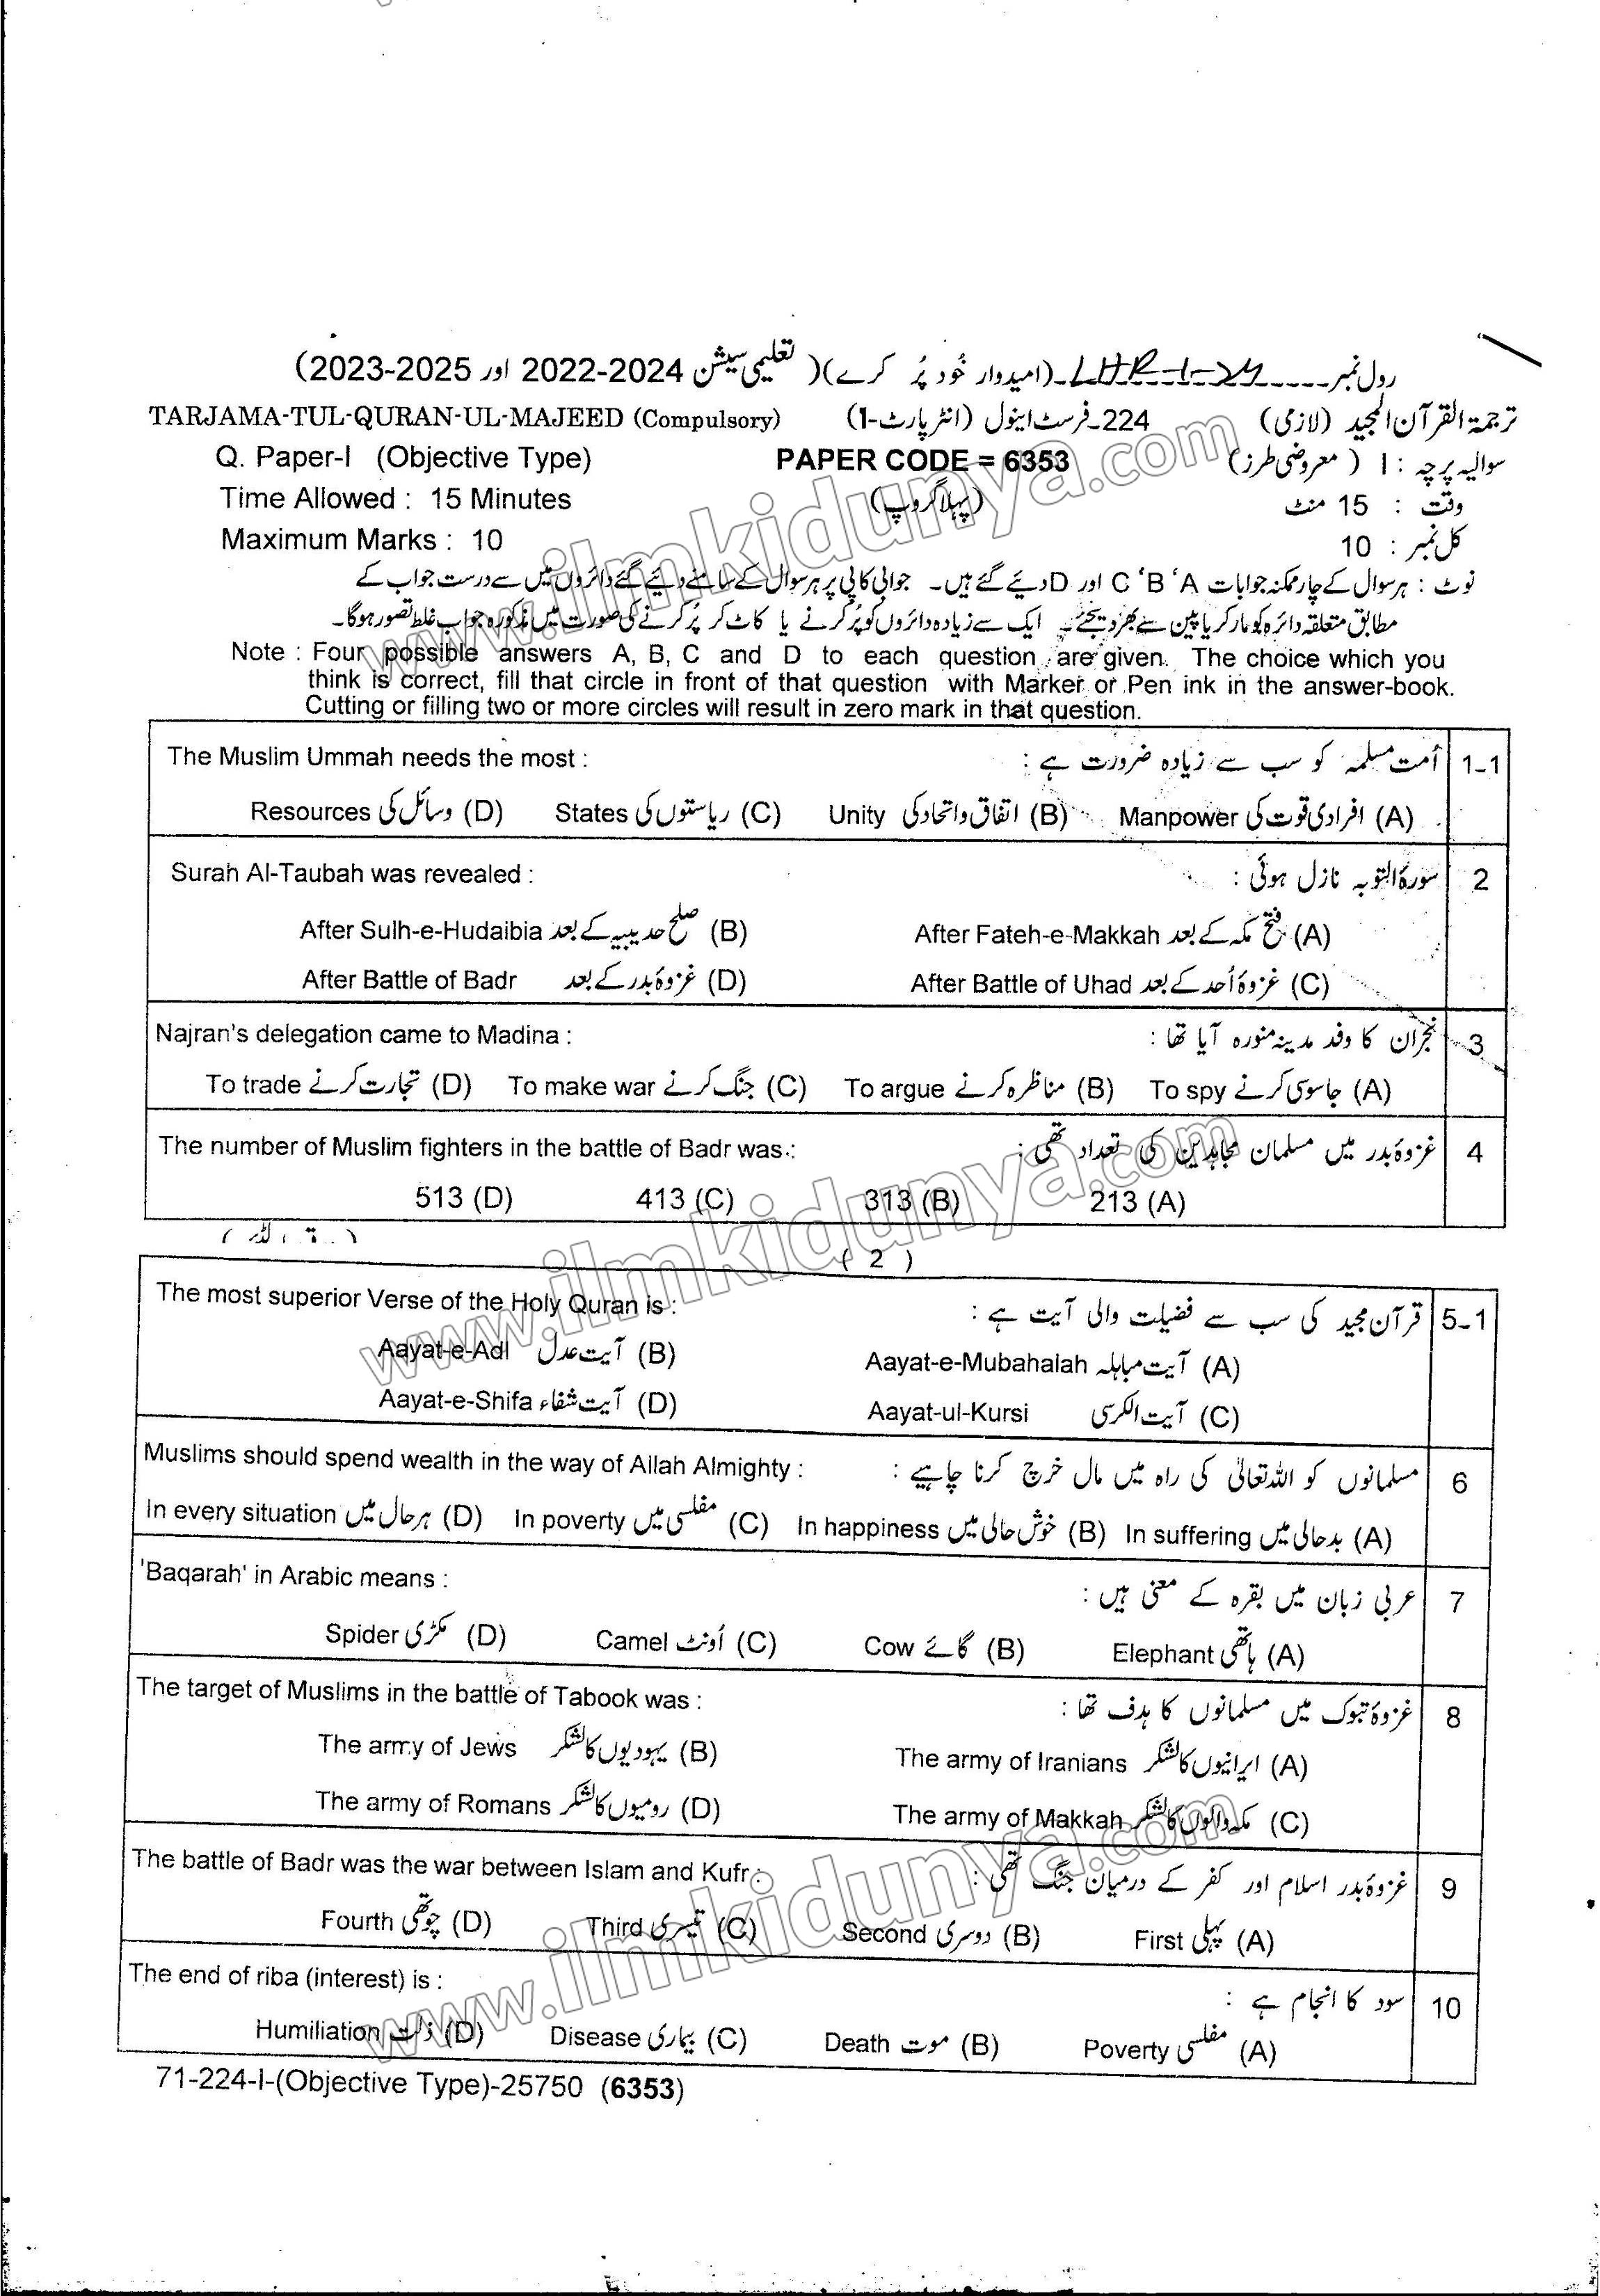 رول نمبر ۔۔۔۔۔LHR-1-24۔۔۔۔ (امیدوار خُود پُر کرے) (تعلیمی سیشن 2022-2024 اور 2023-2025)
TARJAMA-TUL-QURAN-UL-MAJEED (Compulsory) 224۔فرسٹ اینول (انٹر پارٹ-I) ترجمۃ القرآن المجید (لازمی)
Q. Paper-I (Objective Type) PAPER CODE = 6353 سوالیہ پرچہ : I (معروضی طرز)
Time Allowed : 15 Minutes (پہلا گروپ) وقت : 15 منٹ
Maximum Marks : 10 کل نمبر : 10
نوٹ : ہر سوال کے چار ممکنہ جوابات A ‘B ‘C اور D دیئے گئے ہیں۔ جوابی کاپی پر ہر سوال کے سامنے دیئے گئے دائروں میں سے درست جواب کے
مطابق متعلقہ دائرہ کو مارکر یا پین سے بھر دیجئے۔ ایک سے زیادہ دائروں کو پُر کرنے یا کاٹ کر پُر کرنے کی صورت میں مذکورہ جواب غلط تصور ہوگا۔
Note : Four possible answers A, B, C and D to each question are given. The choice which you
think is correct, fill that circle in front of that question with Marker or Pen ink in the answer-book.
Cutting or filling two or more circles will result in zero mark in that question.
The Muslim Ummah needs the most : اُمت مسلمہ کو سب سے زیادہ ضرورت ہے : 1-1
Resources وسائل کی (D) States ریاستوں کی (C) Unity اتفاق و اتحاد کی (B) Manpower افرادی قوت کی (A)
Surah Al-Taubah was revealed : سورۃ التوبہ نازل ہوئی : 2
After Sulh-e-Hudaibia صلح حدیبیہ کے بعد (B) After Fateh-e-Makkah فتح مکہ کے بعد (A)
After Battle of Badr غزوۂ بدر کے بعد (D) After Battle of Uhad غزوۂ اُحد کے بعد (C)
Najran's delegation came to Madina : نجران کا وفد مدینہ منورہ آیا تھا : 3
To trade تجارت کرنے (D) To make war جنگ کرنے (C) To argue مناظرہ کرنے (B) To spy جاسوسی کرنے (A)
The number of Muslim fighters in the battle of Badr was : غزوۂ بدر میں مسلمان مجاہدین کی تعداد تھی : 4
513 (D) 413 (C) 313 (B) 213 (A)
( 2 )
The most superior Verse of the Holy Quran is : قرآن مجید کی سب سے فضیلت والی آیت ہے : 5-1
Aayat-e-Adl آیت عدل (B) Aayat-e-Mubahalah آیت مباہلہ (A)
Aayat-e-Shifa آیت شفاء (D) Aayat-ul-Kursi آیت الکرسی (C)
Muslims should spend wealth in the way of Allah Almighty : مسلمانوں کو اللہ تعالیٰ کی راہ میں مال خرچ کرنا چاہیے : 6
In every situation ہر حال میں (D) In poverty مفلسی میں (C) In happiness خوش حالی میں (B) In suffering بدحالی میں (A)
'Baqarah' in Arabic means : عربی زبان میں بقرہ کے معنی ہیں : 7
Spider مکڑی (D) Camel اُونٹ (C) Cow گائے (B) Elephant ہاتھی (A)
The target of Muslims in the battle of Tabook was : غزوۂ تبوک میں مسلمانوں کا ہدف تھا : 8
The army of Jews یہودیوں کا لشکر (B) The army of Iranians ایرانیوں کا لشکر (A)
The army of Romans رومیوں کا لشکر (D) The army of Makkah مکہ والوں کا لشکر (C)
The battle of Badr was the war between Islam and Kufr : غزوۂ بدر اسلام اور کفر کے درمیان جنگ تھی : 9
Fourth چوتھی (D) Third تیسری (C) Second دوسری (B) First پہلی (A)
The end of riba (interest) is : سود کا انجام ہے : 10
Humiliation ذلت (D) Disease بیماری (C) Death موت (B) Poverty مفلسی (A)
71-224-I-(Objective Type)-25750 (6353)
www.ilmkidunya.com
www.ilmkidunya.com
www.ilmkidunya.com